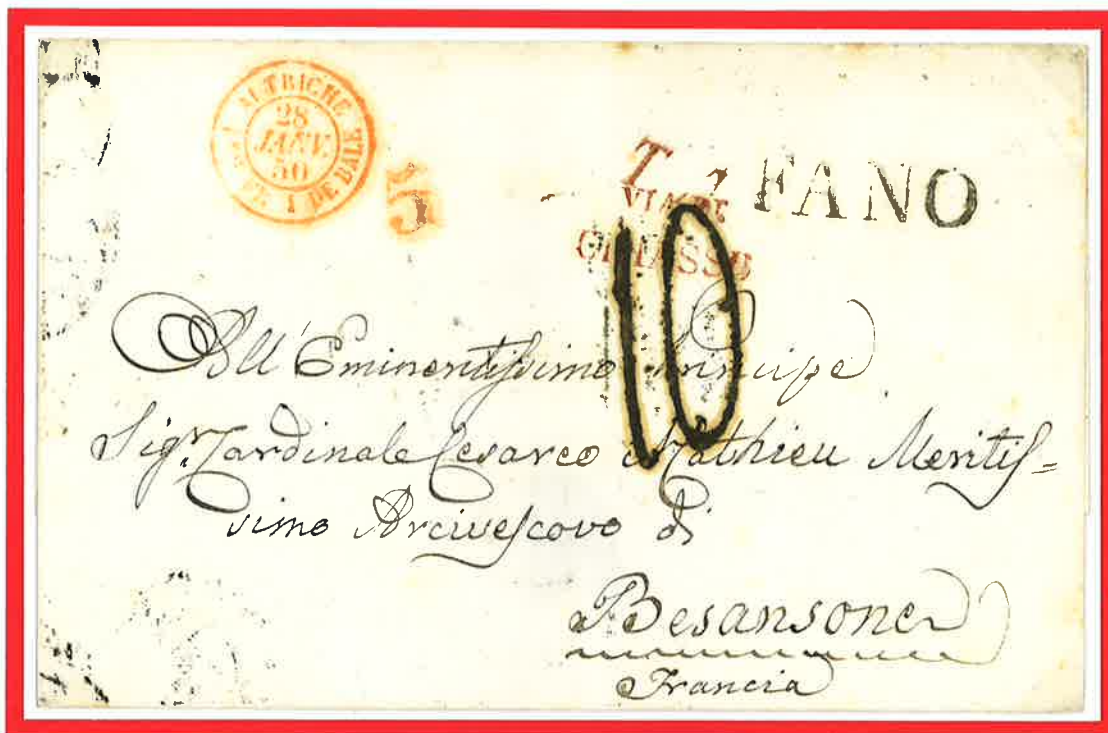 AUTRICHE
28
JANV.
50
1 DE BALE
15
T.
FANO
VIA DI
10
All' Eminentissimo Principe
Sigr. Cardinale Cesareo Mathieu Meritis=
simo Arcivescovo di
Besansone
Francia